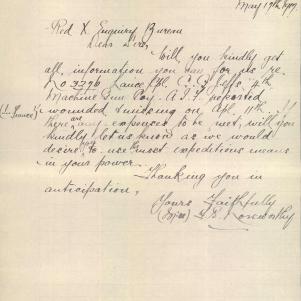 May 17th, 1917
Red X Enquiry Bureau
Dear Sirs,
Will you kindly get
all information you can for us re
No 3276 Lance Cpl. 4th
Machine Gun Coy. A.I.F. reported
wounded & missing on Apl 11th.
(In France)
If there are any expenses to be met, will you
kindly let us know as we would
desire you to use the most expeditious means
in your power.
Thanking you in
anticipation,
Yours Faithfully
(Miss)